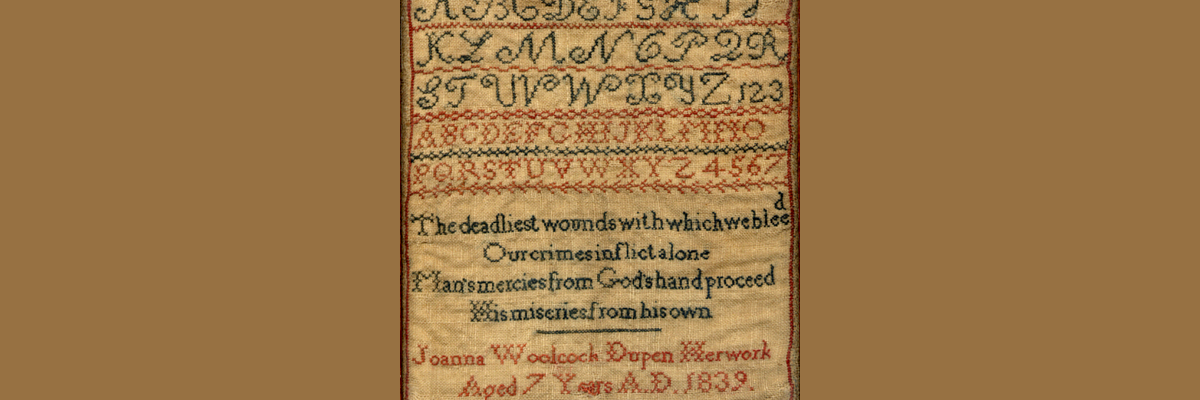 A B C D E F G H I J
K L M N O P Q R
S T U V W X Y Z 123
A B C D E F G H I J K L M N O
P Q R S T U V W X Y Z 4567
The deadliest wounds with which we bleed
Our crimes inflict alone
Man's mercies from God's hand proceed
His miseries from his own
Joanna Woolcock Dupen Her work
Aged 7 Years A.D. 1839.